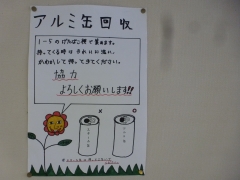 アルミ缶回収
1-5のげんかん横で集めます。
持ってくる時はきれいに洗い、
かわかして持ってきてください。
協力
よろしくお願いします!!